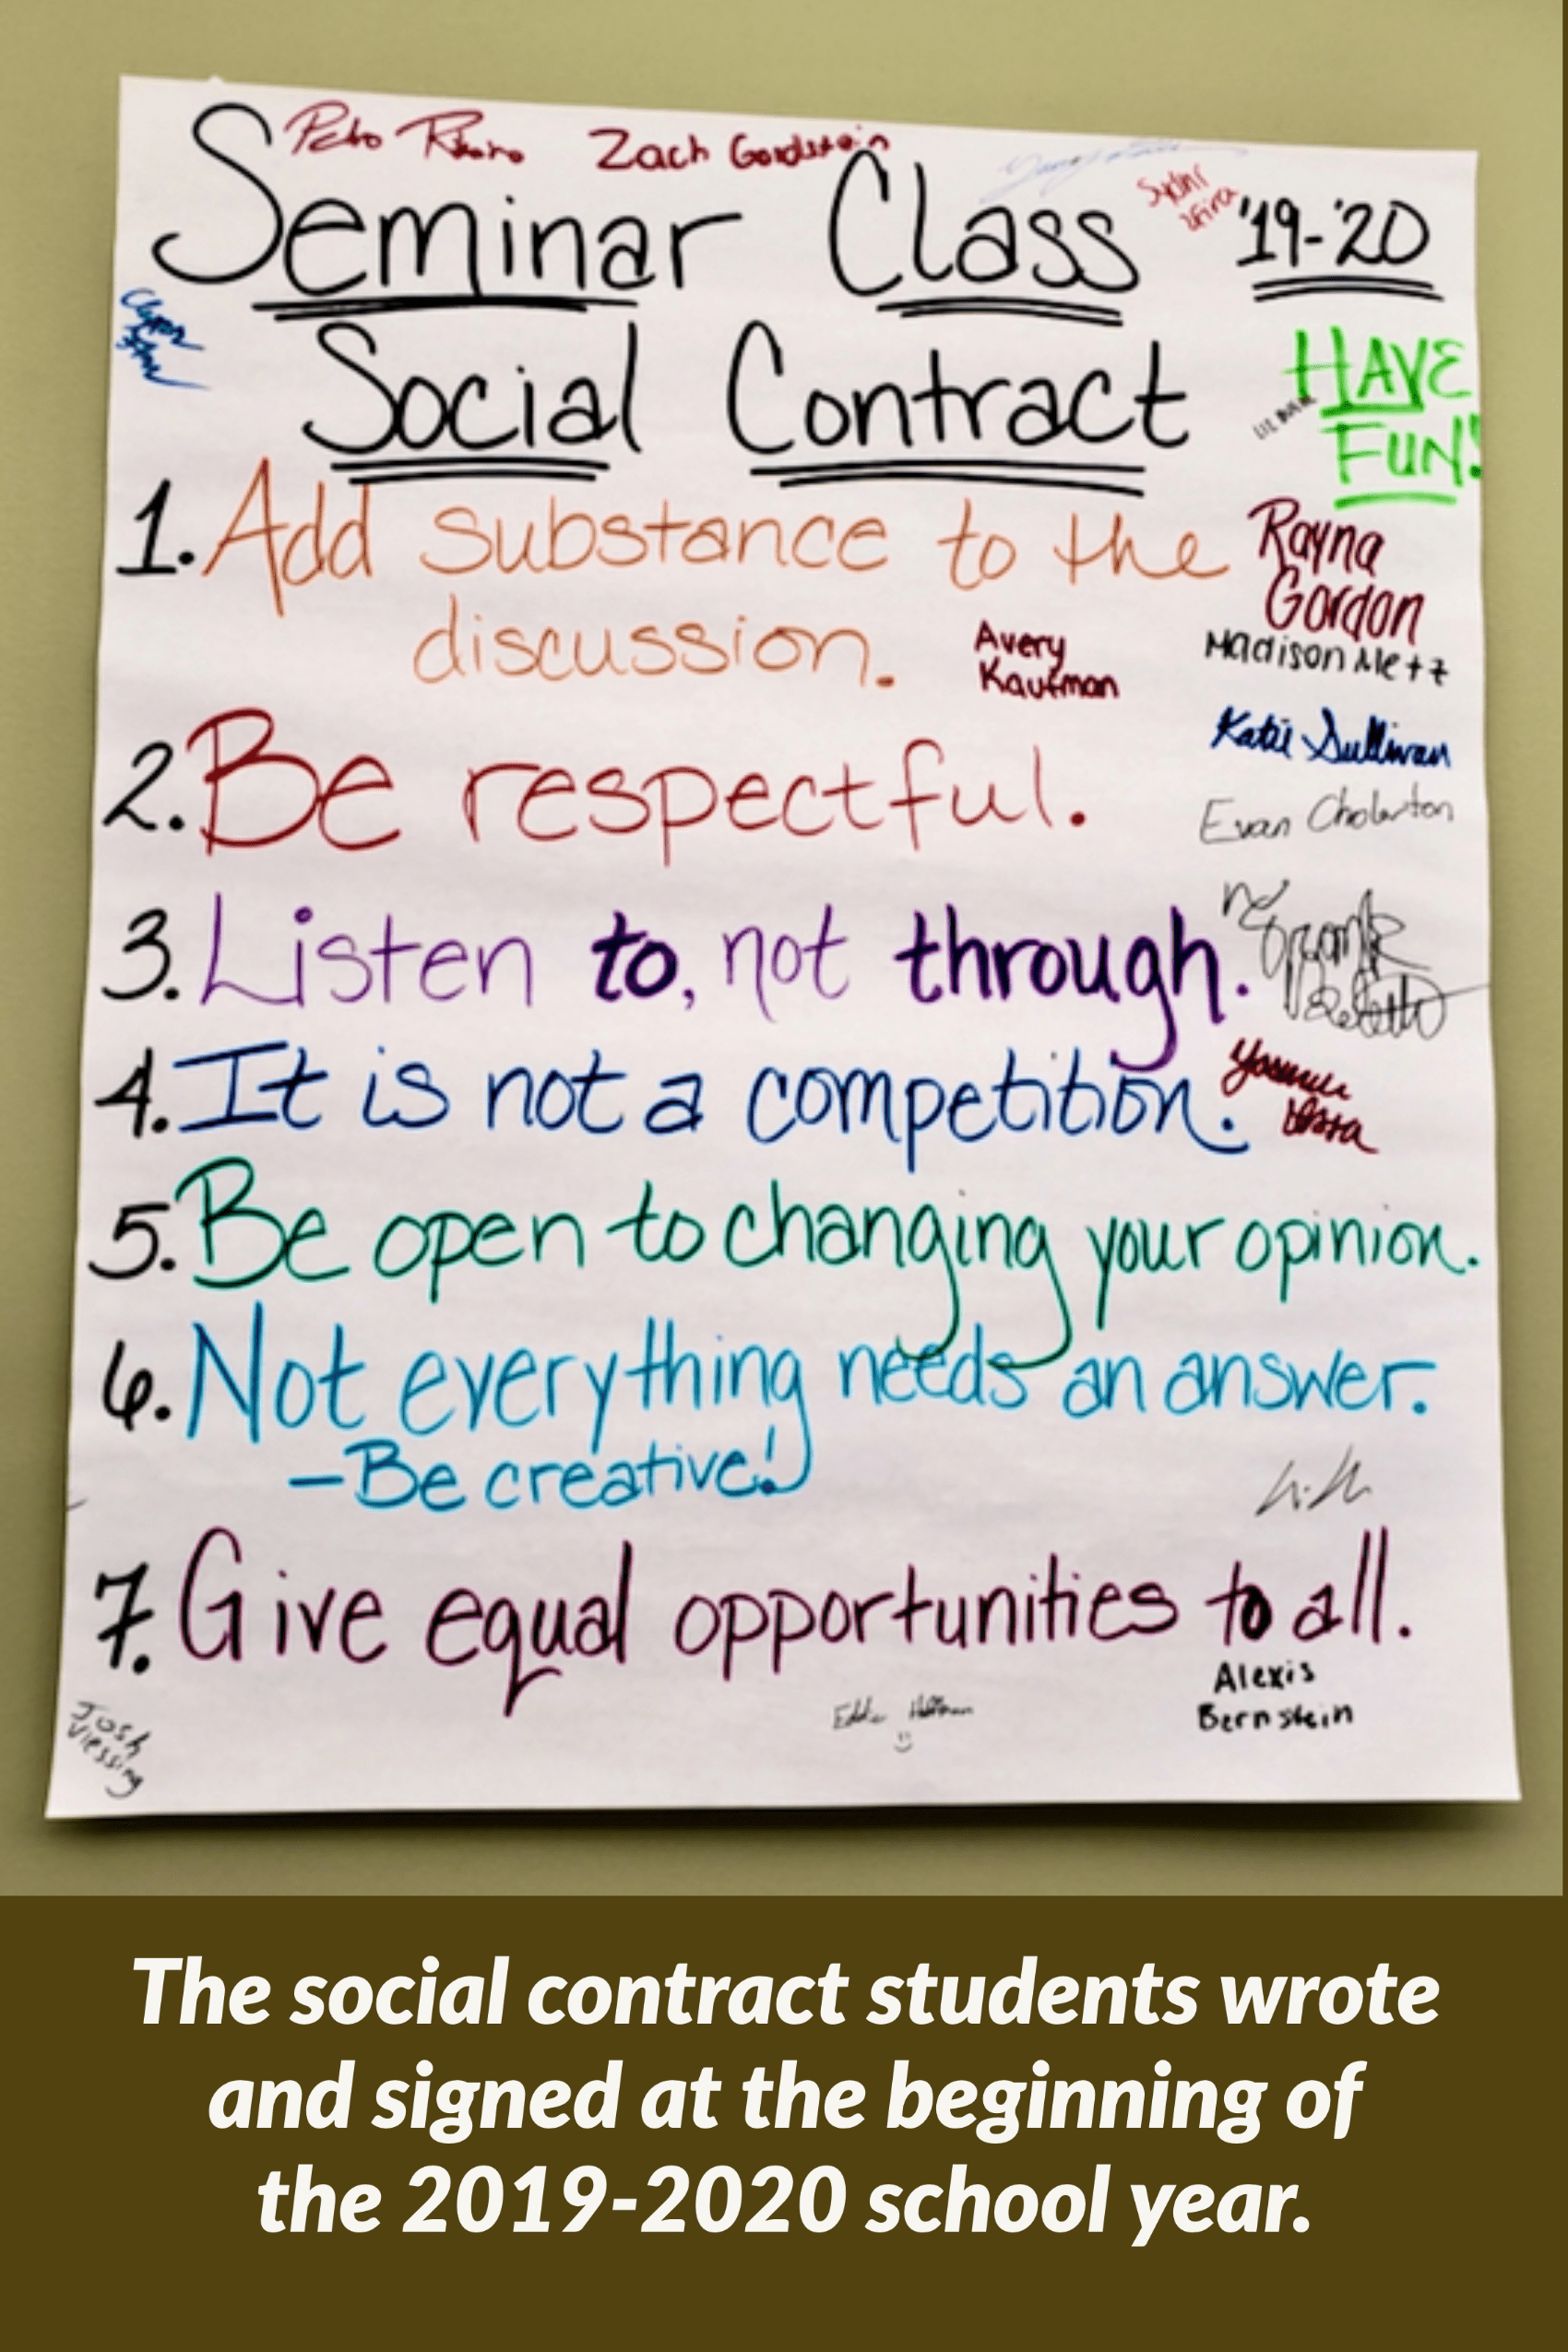 Zach
Seminar Class '19-'20
Social Contract
HAVE
FUN!
1. Add substance to the
discussion.
Rayna
Gordon
Avery
Kaufman
Madison Metz
2. Be respectful.
Katie Sullivan
Evan
3. Listen to, not through.
4. It is not a competition.
5. Be open to changing your opinion.
6. Not everything needs an answer.
-Be creative!
7. Give equal opportunities to all.
Alexis
Bernstein
Josh
Viessing
The social contract students wrote
and signed at the beginning of
the 2019-2020 school year.